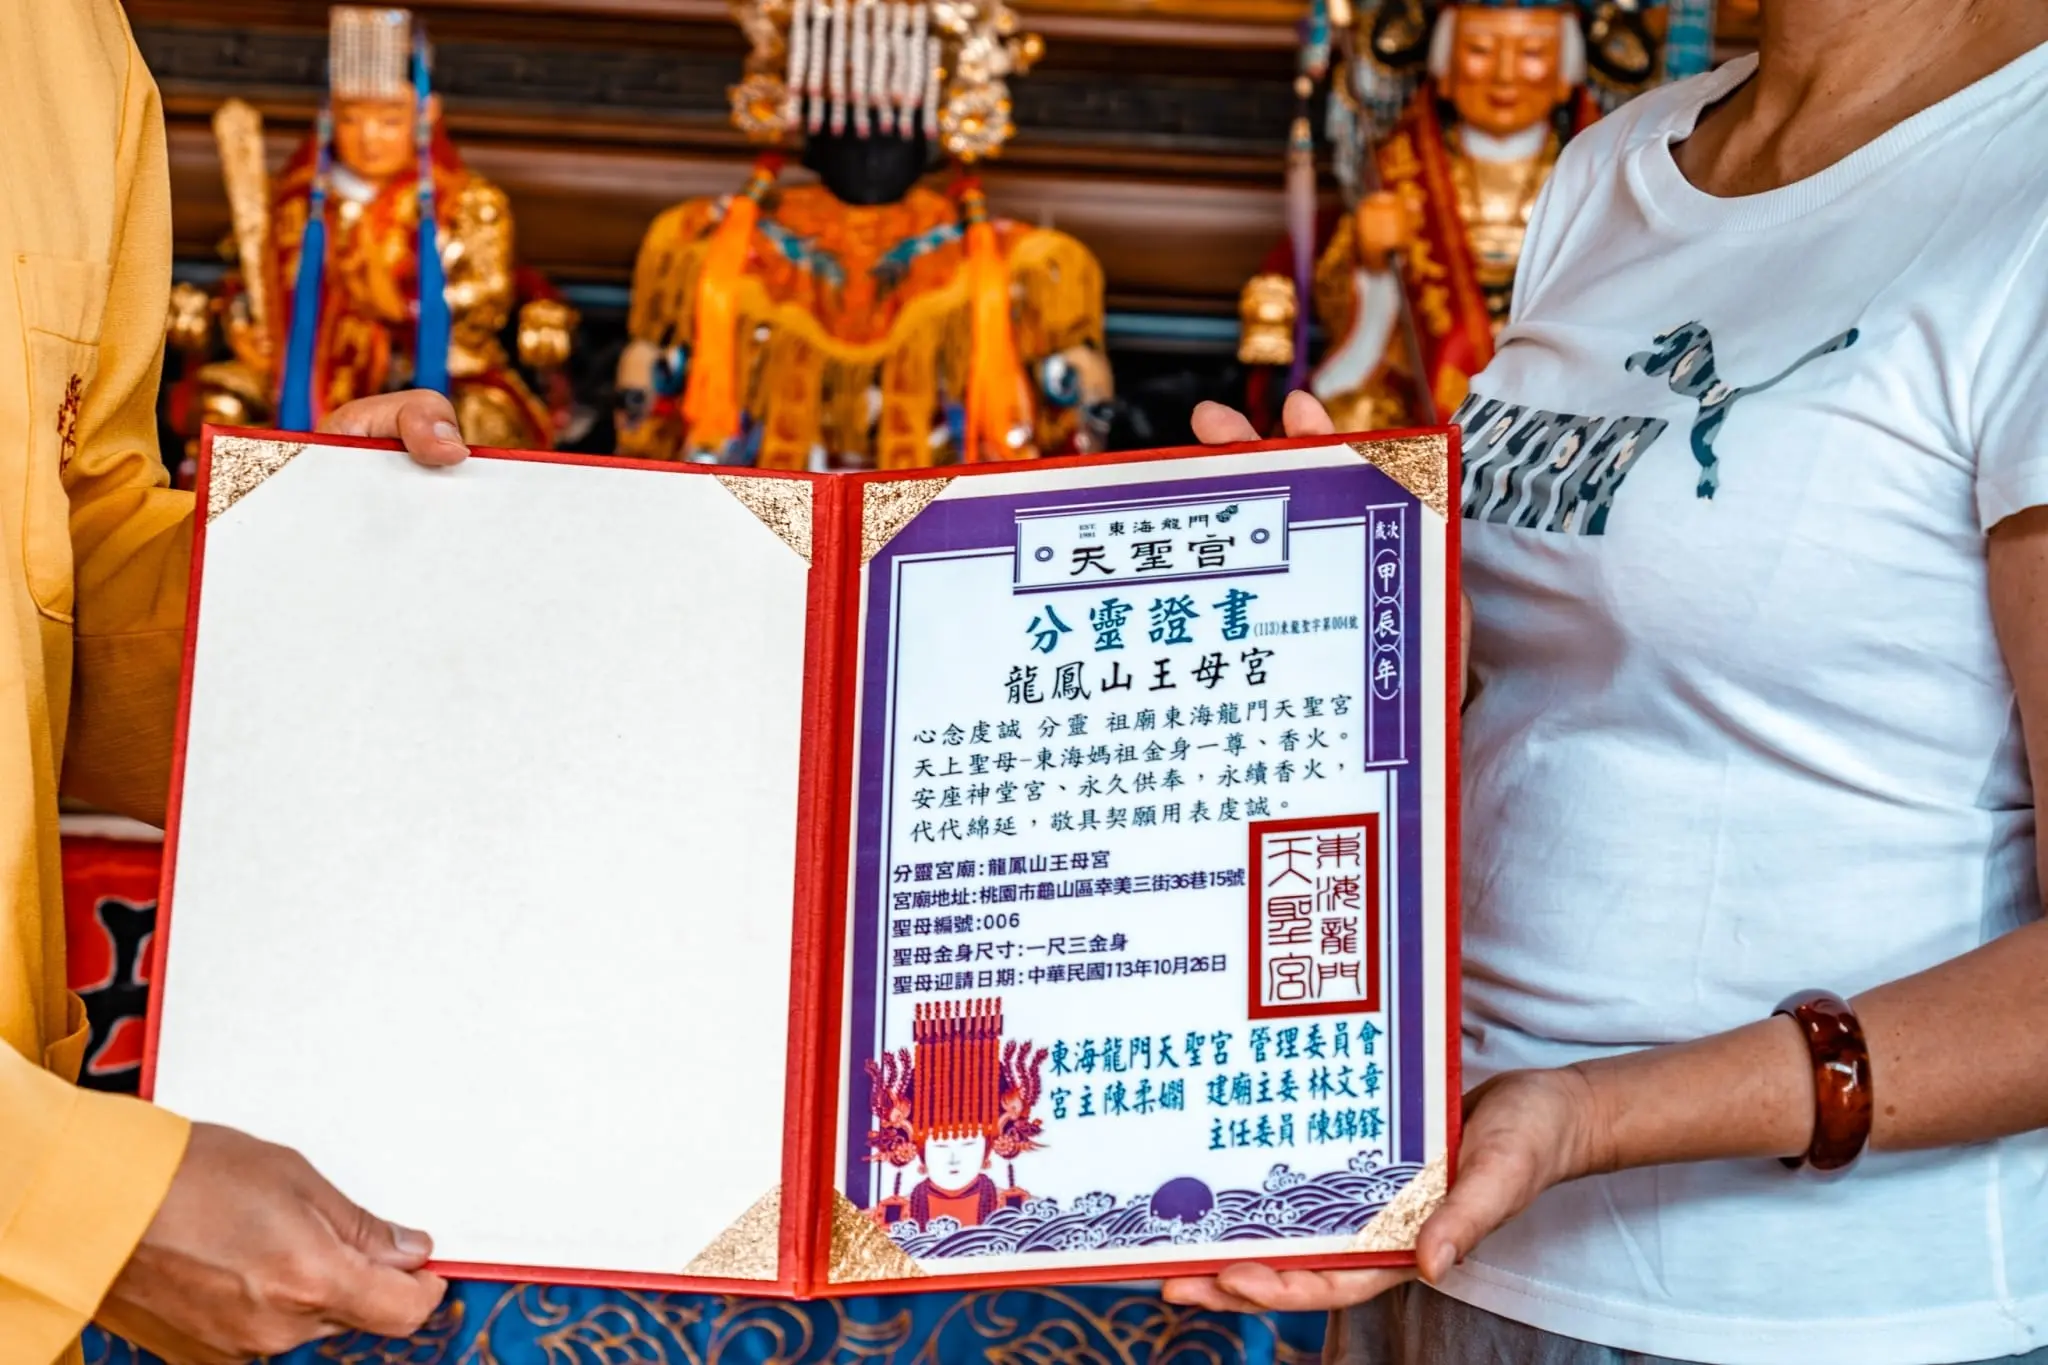 EST. 1981 東海龍門
天聖宮
歲次甲辰年
分靈證書 (113)東龍聖字第004號
龍鳳山王母宮
心念虔誠 分靈 祖廟東海龍門天聖宮
天上聖母-東海媽祖金身一尊、香火。
安座神堂宮、永久供奉，永續香火，
代代綿延，敬具契願用表虔誠。
分靈宮廟:龍鳳山王母宮
宮廟地址:桃園市龜山區幸美三街36巷15號
聖母編號:006
聖母金身尺寸:一尺三金身
聖母迎請日期:中華民國113年10月26日
東海龍門
天聖宮
東海龍門天聖宮 管理委員會
宮主陳柔嫻 建廟主委 林文章
主任委員 陳錦鋒